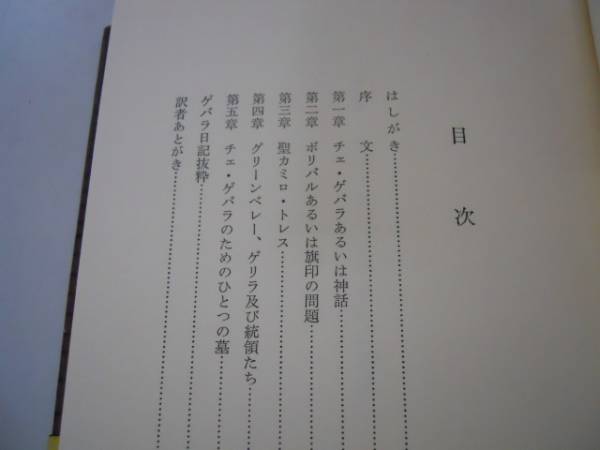 目次
はしがき
序文
第一章 チェ・ゲバラあるいは神話
第二章 ボリバルあるいは旗印の問題
第三章 聖カミロ・トレス
第四章 グリーンベレー、ゲリラ及び統領たち
第五章 チェ・ゲバラのためのひとつの墓
ゲバラ日記抜粋
訳者あとがき